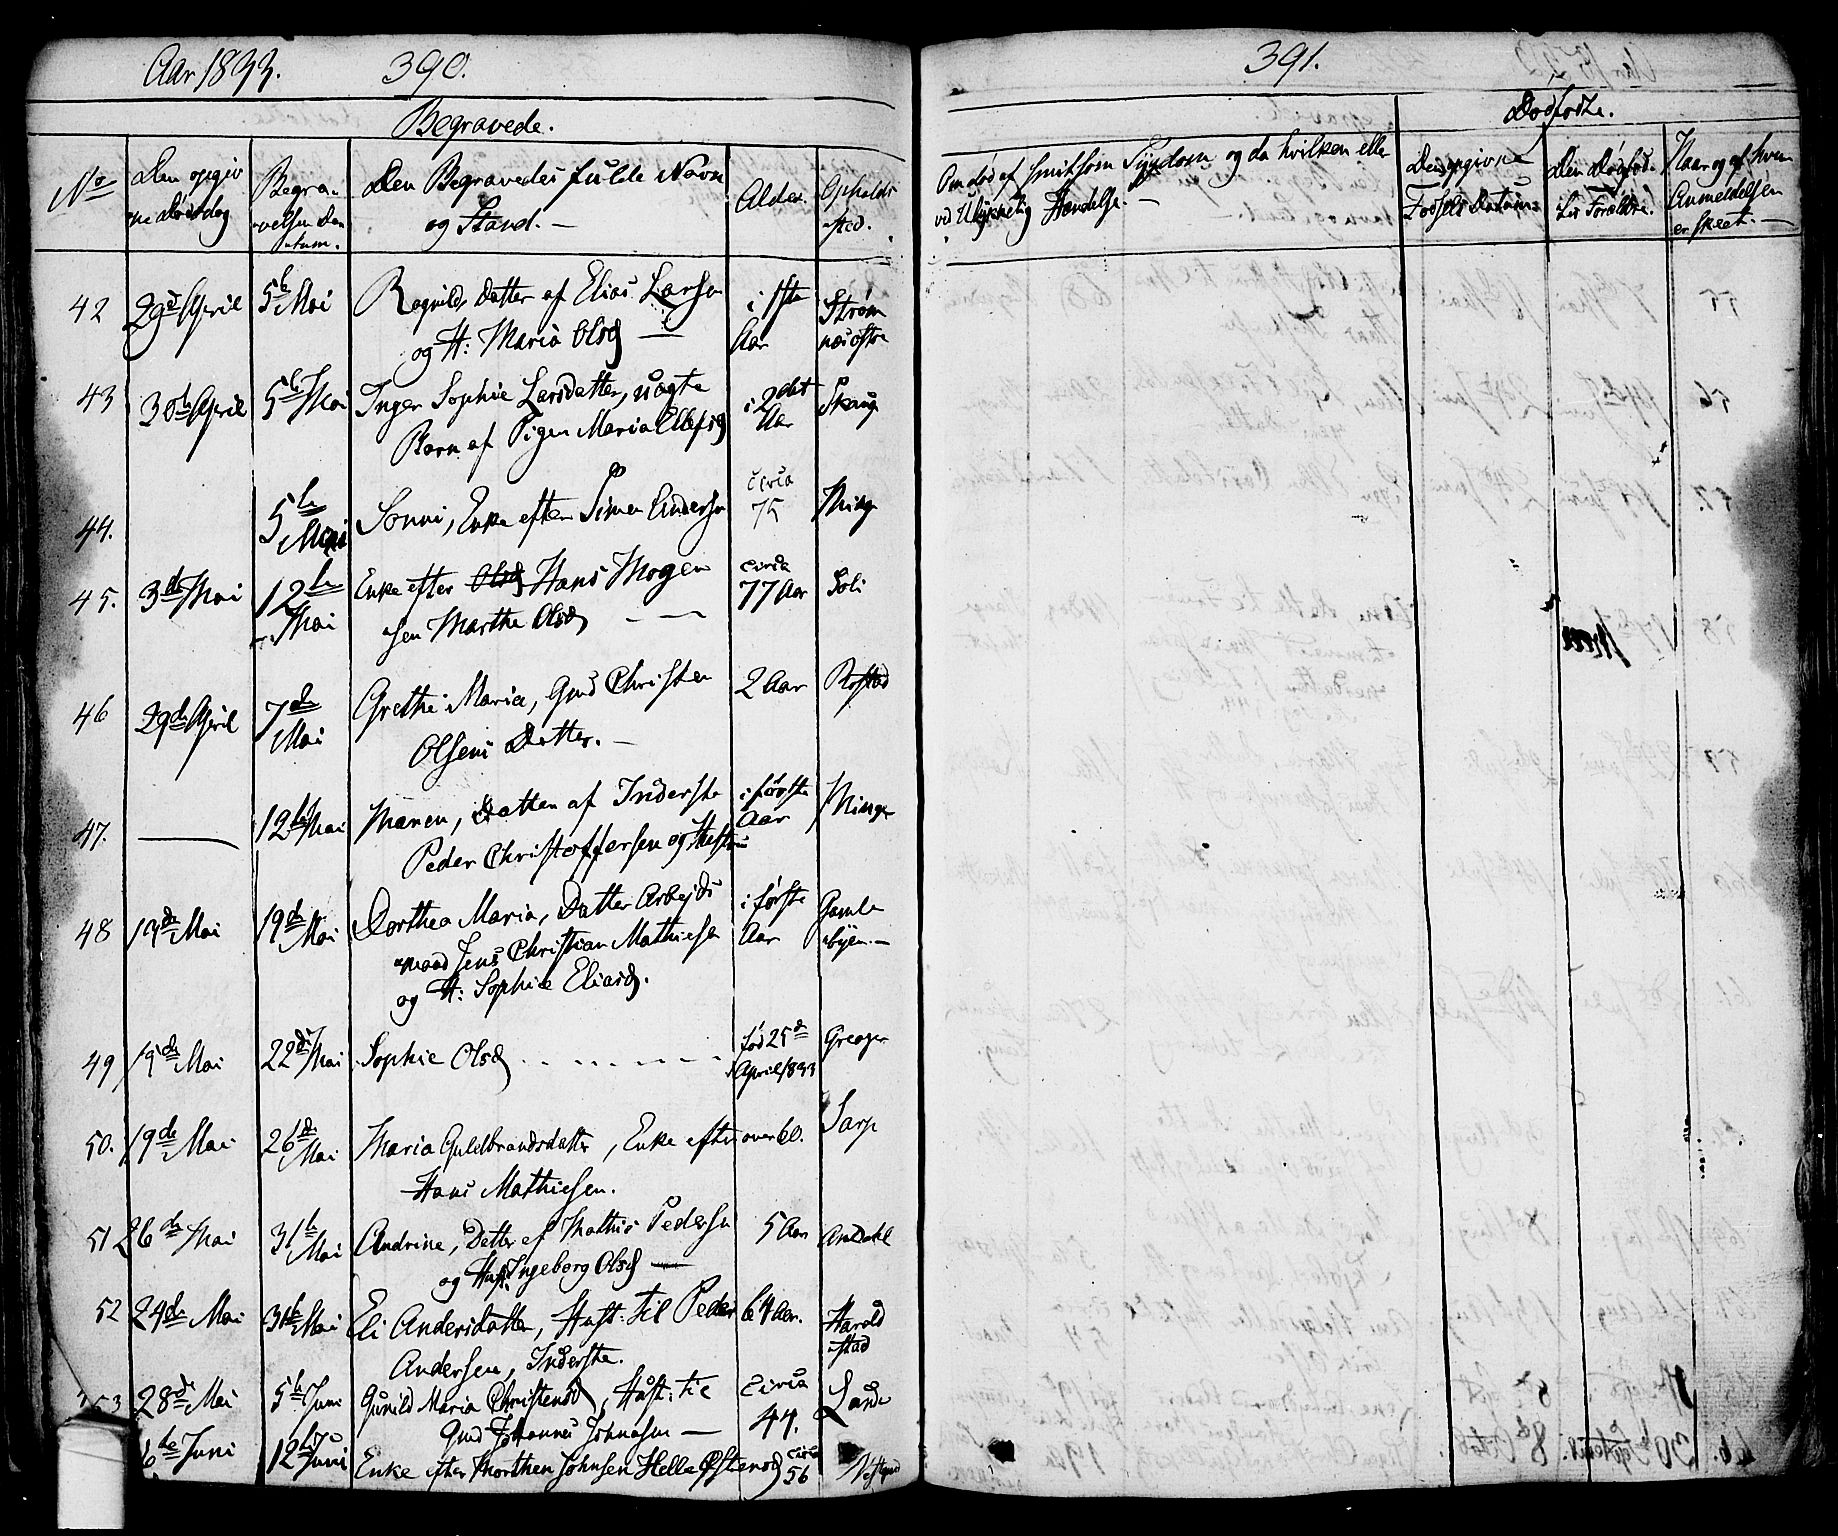 Aar 1833. 390.
Begravede.
No
Den opgiv
ne Dødsdag
Begra-
velsen Da-
tum.
Den Begravedes fulde Navn
og Stand. —
Alder.
Opholds
sted.
42 29de April 5te Mai Ragnild, Datter af Elias Larsen i 1ste Strøm
og H: Maria Olsd — Aar næs østre
43 30te April 5te Mai Inger Sophie Larsdatter, uægte i 2det Skaug
Barn af Pigen Maria Ellefsd Aar
44. 5te Mai Sønni, Enke efter Simen Andersen circa 75 Minge
45. 3de Mai 12te Mai Enke efter Olsd Hans Mogen circa 77 Aar Soli
sen Marthe Olsd — —
46 29de April 7de Mai Grethe Maria, Gmd Christen 2 Aar Rostad
Olsens Datter. —
47. — 12te Mai Maren, Datter af Inderste i første Minge
Peder Christoffersen og Hustru Aar
48 13de Mai 19de Mai Dorthea Maria, Datter Arbejds i første Gamle
mand Jens Christian Mathiesen Aar byen. —
og H: Sophie Eliasd.
49 15de Mai 22de Mai Sophie Olsd - - - - - - - fød 25de Greager
April 1833
50. 19de Mai 26de Mai Maria Guldbrandsdatter, Enke efter over 60. Sarp
Hans Mathiesen.
51 26de Mai 31te Mai Andrine, Datter af Mathis Pedersen 5 Aar Ardahl
og Hust: Ingeborg Olsd —
52 24de Mai 31te Mai Eli Andersdatter, Hust: til Peder 64 Aar. Harald
Andersen, Inderste. stad
53 28de Mai 5te Juni Gunild Maria Christensd, Hust: til circa Lande
Gmd Johannes Johnsen — 44.
6te Juni 12te Juni Enke efter Morthen Johnsen Helle Østensd circa 56 Vestgaard
391.
Dødfødte.
Om død af smitsom Sygdom og da hvilken eller
ved Ulykkelig Hændelse. —
Den opgivne
Fødsels Datum
Den Dødfød-
tes Forældre.
Naar og af hvem
Anmeldelsen
er skeet. —